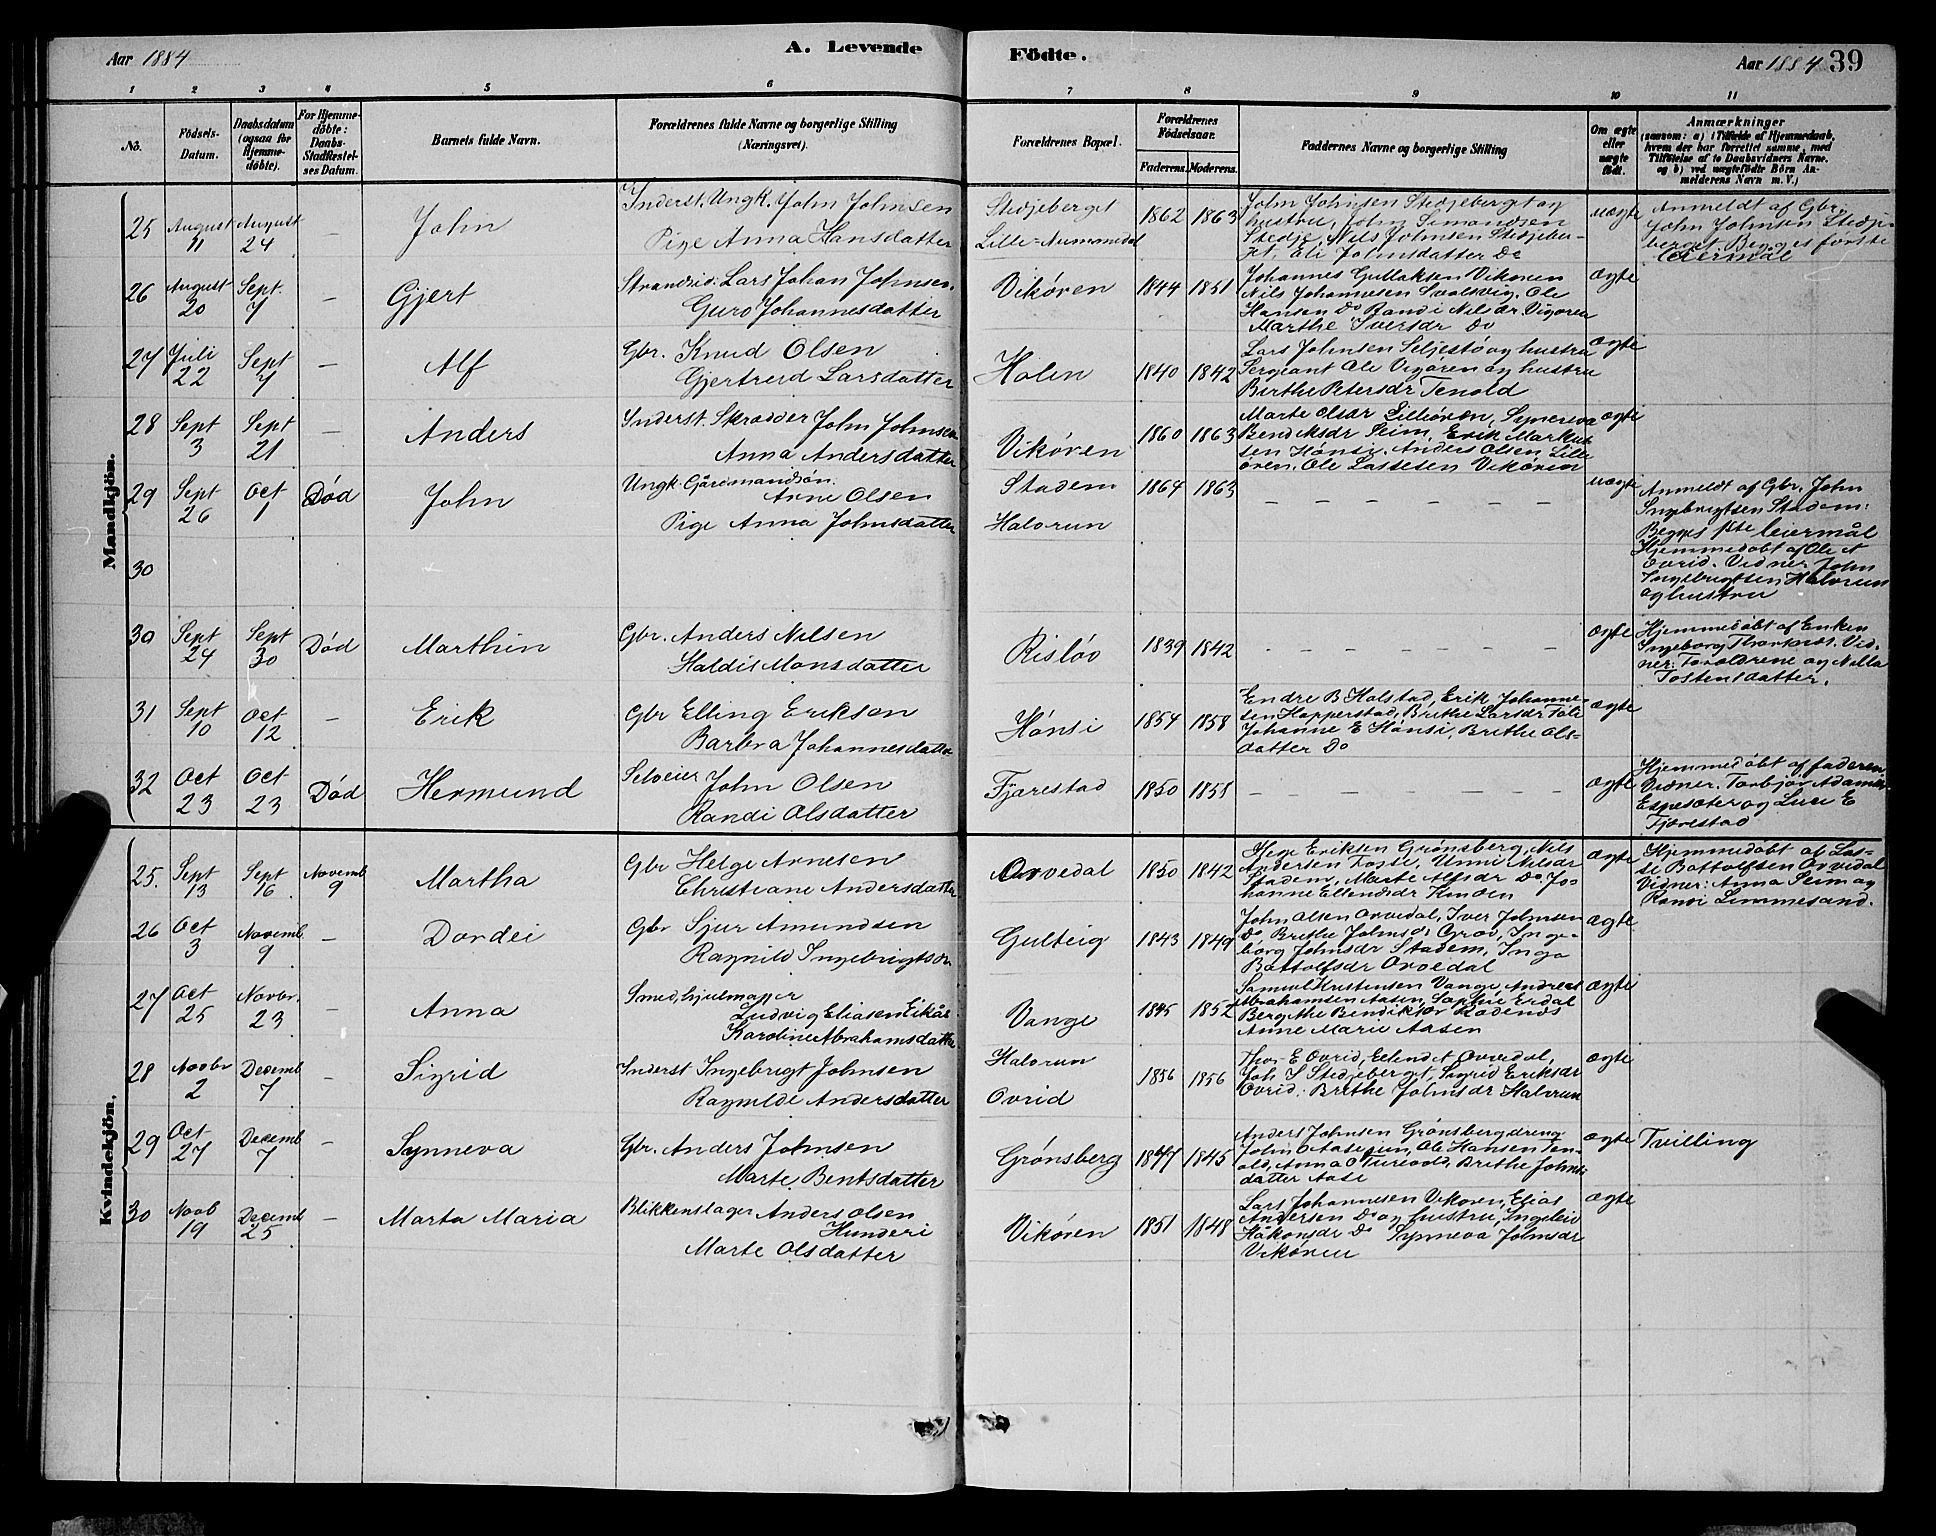 Aar 1884
A. Levende
Födte.
Aar 1884 39
1 2 3 4 5 6 7 8 9 10 11
No.
Födsels-Datum.
Daabsdatum (ogsaa for Hjemme-döbte).
For Hjemme-döbte: Daabs-Stadfæstel-ses Datum.
Barnets fulde Navn.
Forældrenes fulde Navne og borgerlige Stilling (Næringsvei).
Forældrenes Bopæl.
Forældrenes Födselsaar.
Faderens. Moderens.
Faddernes Navne og borgerlige Stilling
Om ægte eller uægte födt.
Anmærkninger
(saasom: a) i Tilfælde af Hjemmedaab, hvem der har forrettet samme, med Tilföielse af to Daabsvidners Navne. og b) ved uægtefödte Börn An-melderens Navn m. V.)
Mandkjön.
25 August 11 August 24 – John
Inderst. Ungk. John Johnsen
Pige Anna Hansdatter
Stedjeberget
Lille-Aummedal
1862 1863
John Johnsen Stedjeberget og
hustru, John Simondsen
Stedje, Nils Johnsen Stedjeber-
get, Eli Johnsdatter Do
uægte
Anmeldt af Gbr.
John Johnsen Stedje
berget Begges første
leiermål
26 August 20 Sept. 7 – Gjert
Strandsid: Lars Johan Johnsen.
Guro Johannesdatter
Vikøren 1844 1851
Johannes Gullaksen Vikøren
Nils Johannesen Svolsvig. Ole
Hansen Do Randi Nilsdr. Vigøren
Marthe Iversdr Do
ægte
27 Juli 22 Sept 7 – Alf
Gbr. Knud Olsen
Gjertrud Larsdatter
Holen 1840 1842
Lars Johnsen Seljestø og hustru
Sergeant Ole Vigøren og hustru
Birthe Petersdr Tenold
ægte
28 Sept 3 Sept 21 – Anders
Inderst. Skrædder John Johnsen
Anna Andersdatter
Vikøren 1860 1863
Marte Olsdr Lilleøren, Syneva
Bendiksdr Seim, Erik Markus
sen Hønsi. Anders Olsen Lille
øren. Ole Lassesen Vikøren
ægte
29 Sept 26 Oct 1 Død John
Ungk. Gårdmandsøn.
Arne Olsen
Pige Anna Johnsdatter
Stadem
Halorun
1864 1863
– – – – – – –
uægte
Anmeldt af Gbr. John
Ingebrigtsen Stadem:
Begges 1ste leiermål
Hjemmedøbt af Ole A
Ovrid. Vidner John
Ingebrigtsen Halvrun
og hustru
30
30 Sept 24 Sept 30 Død Marthin
Gbr. Anders Nilsen
Haldis Monsdatter
Risløv 1839 1842
– – – – – – –
ægte
Hjemmedøbt af Enken
Ingeborg Thorkelsdr. Vid-
ner: Forældrene og Nilla
Tostensdatter.
31 Sept 10 Oct 12 – Erik
Gbr Elling Eriksen
Barbra Johannesdatter
Hønsi 1854 1858
Endre B Holstad, Erik Johanne-
sen Hopperstad, Brithe Larsdr Føli
Johanne E Hønsi, Brithe Ols-
datter Do
ægte
32 Oct 23 Oct 23 Død Hermund
Selveier John Olsen
Randi Olsdatter
Fjærestad 1850 1858
– – – – – – –
ægte
Hjemmedøbt af faderen
Vidner. Torbjør Adams
Espesæter og Luci E
Fjærestad
Kvindekjön.
25. Sept 13 Sept 16 Novemb 9 Martha
Gbr Helge Arnesen
Christiane Andersdatter
Orvedal 1850 1842
Hege Eriksen Grønsberg, Nils
Andersen Fosse, Unni Nilsdr
Stadem, Marte Alfsdr Do Jo-
hanne Ellendsdr Kinden
ægte
Hjemmedøbt af Las-
se Bottolfsen Orvedal
Vidner: Anna Seim og
Randi Limmesand.
26 Oct 3 Novemb 9 – Dordei
Gbr Sjur Amundsen
Ragnild Ingebrigtsdr
Gulteig 1843 1849
John Olsen Orvedal, Iver Johnsen
Do Brithe Johnsdr Grov, Inge-
borg Johnsdr Stadem, Inga
Bottolfsdr Orvedal
ægte
27 Oct 25 Novbr. 23 – Anna
Smed, hjulmager
Ludvig Eliasen Eikås
Karoline Abrahamsdatter
Vange 1845 1852
Samuel Kristensen Vange, Andreas
Abrahamsen Aasen, Sophie Erdal
Bergithe Bendiktsdr Rødends
Anne Marie Aasen
ægte
28 Novbr 2 Decemb 7 – Sigrid
Inderst Ingebrigt Johnsen
Ragnilde Andersdatter
Halorun
Ovrid
1856 1856
Thor E Ovrid, Ellend A Orvedal,
Joh S Stedjeberget, Sigrid Eriksdr
Ovrid: Brethe Johnsdr Halvrun
ægte
29 Oct 27 Decemb 7 – Synneva
Gbr. Anders Johnsen
Marte Bentsdatter
Grønsberg 1847 1845
Anders Johnsen Grønsberg dreng
John O Aasegun, Ole Hansen Ten-
old, Anna O Turevold, Brithe Johns-
datter Aase
ægte
Tvilling
30 Novb 19 Decemb 25 – Marta Maria
Blikkenslager Anders Olsen
Hunderi
Marte Olsdatter
Vikøren 1851 1848
Lars Johannesen Vikøren, Elias
Andersen Do og hustru, Ingeleiv
Håkonsdr Do Synneva Johnsdr
Vikøren
ægte